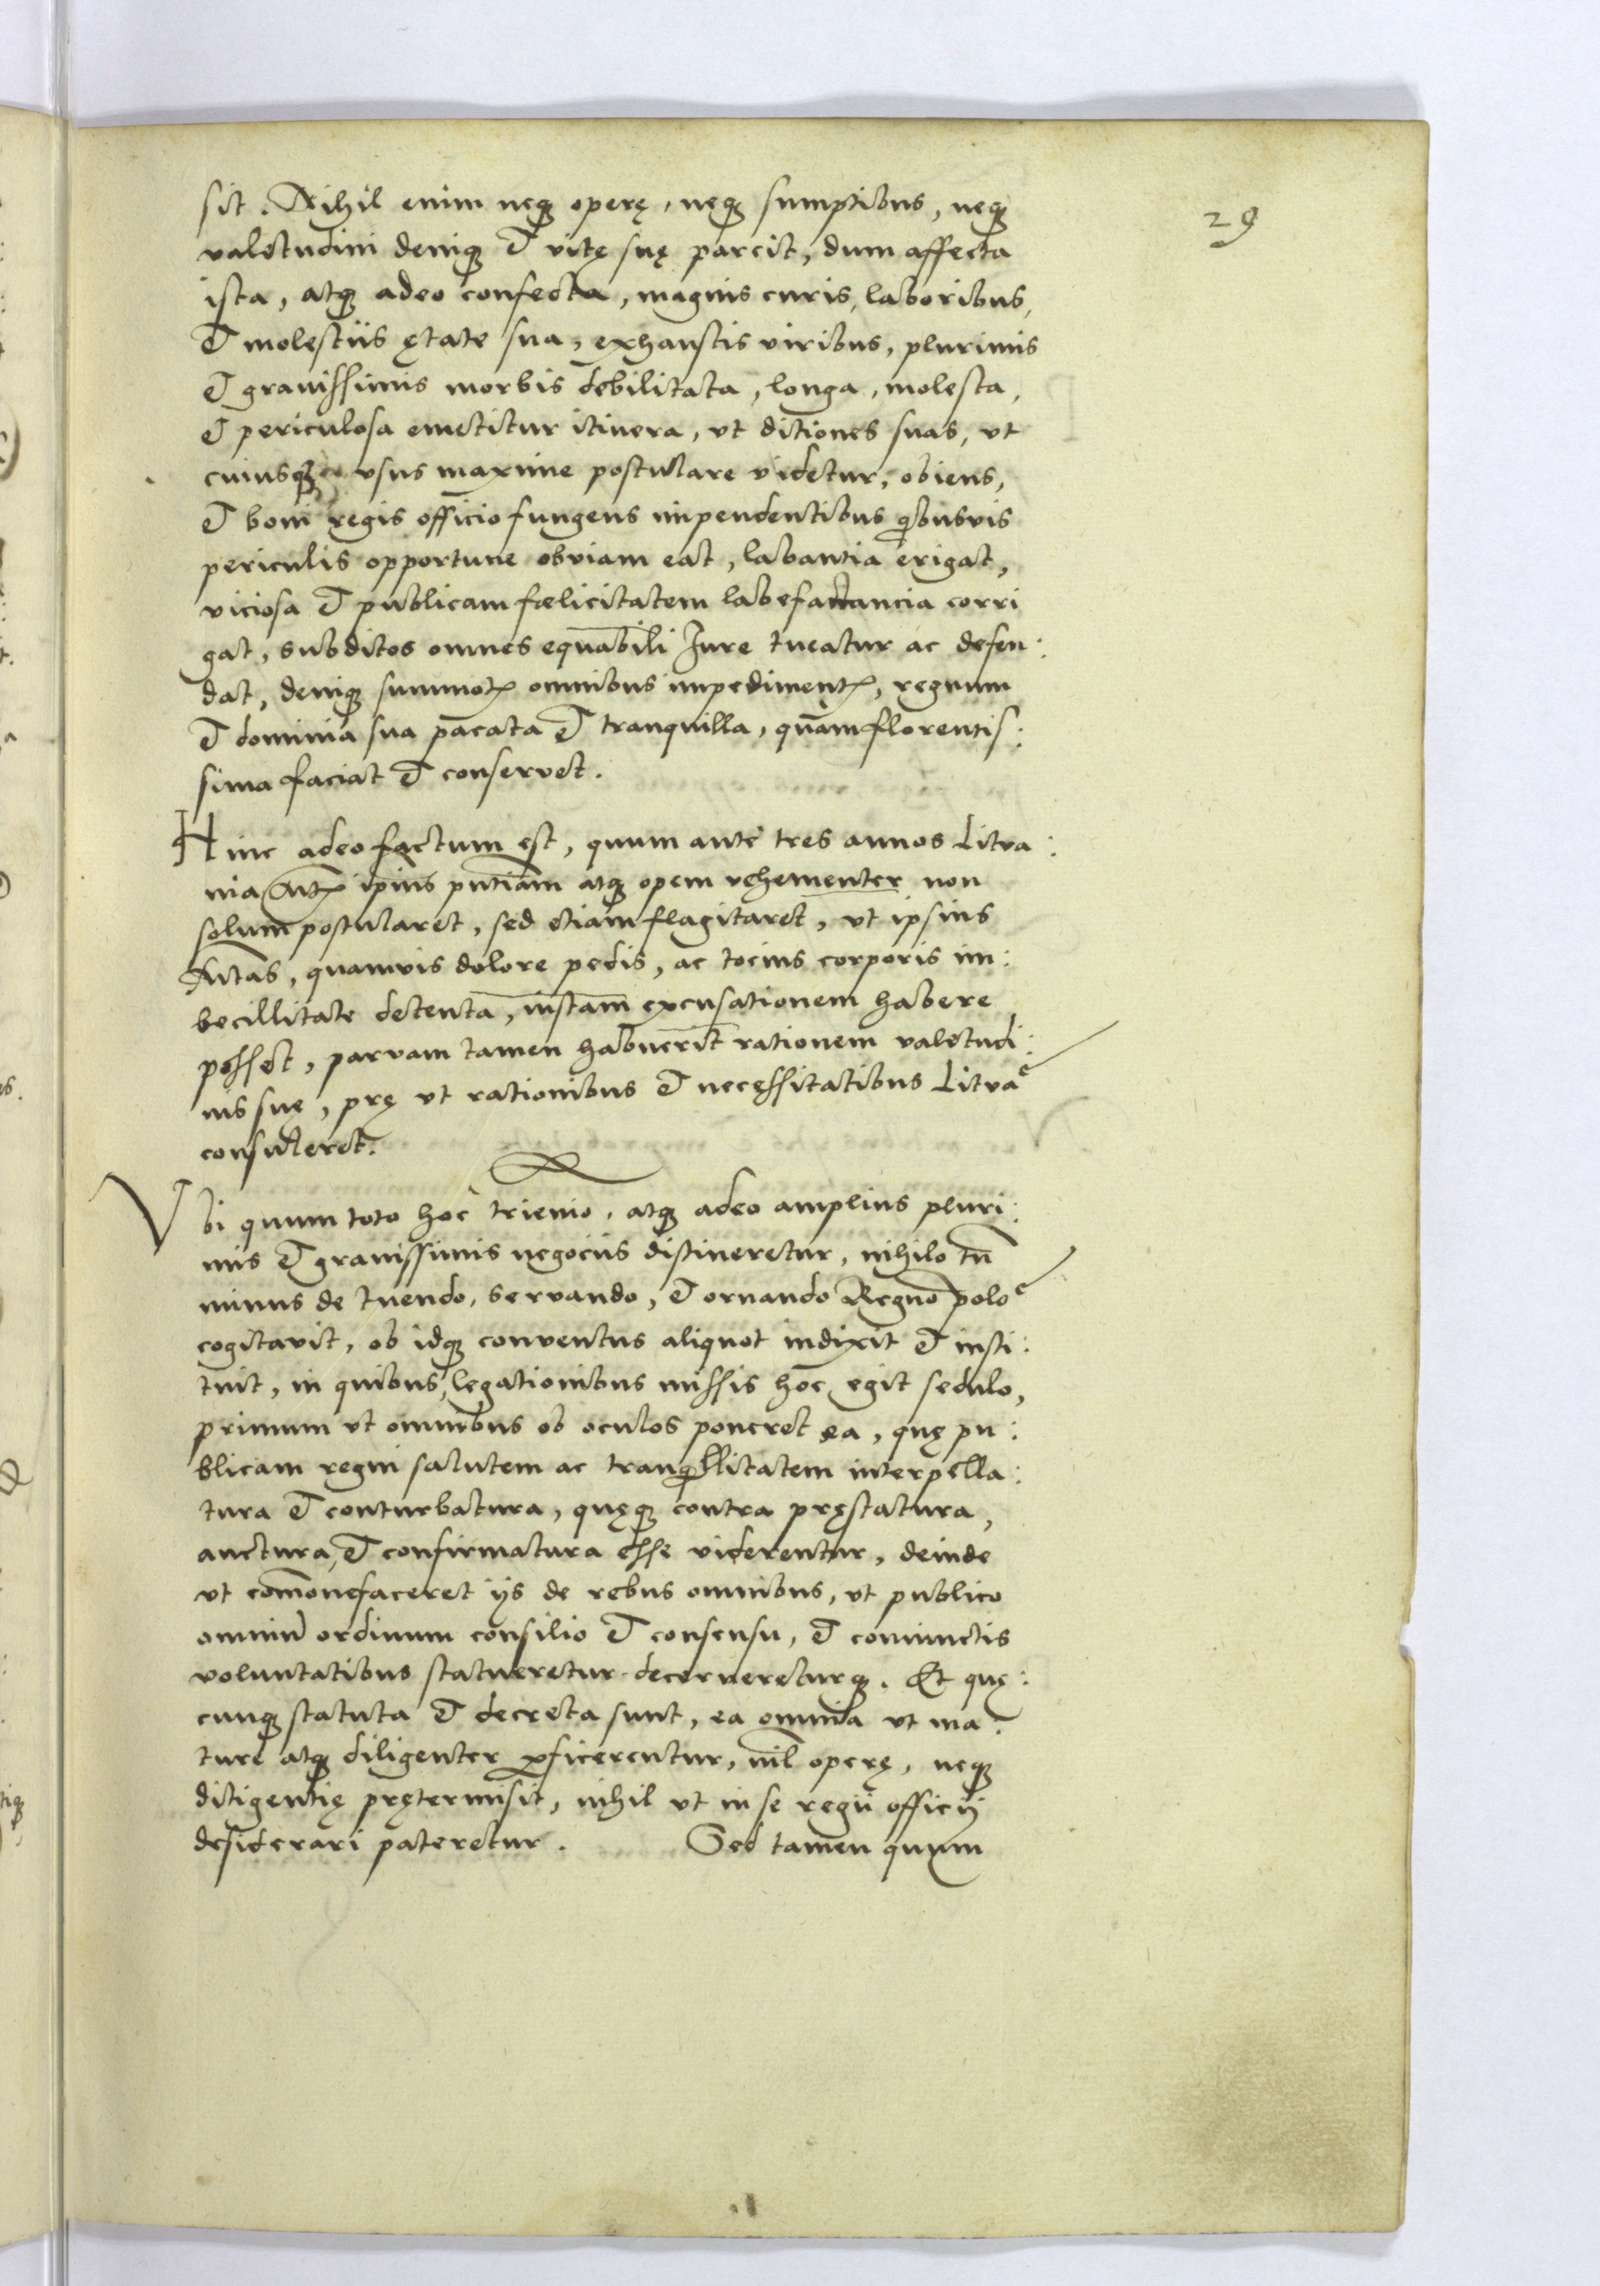 29
sit. Nihil enim neqȝ operę, neqȝ sumptibus, neqȝ
valetudini deniqȝ et vitę suę parcit, dum affecta
ista, atqȝ adeo confecta, magnis curis, laboribus,
et molestiis ętate sua, exhaustis viribus, plurimis
et grauissimis morbis debilitata, longa, molesta,
et periculosa emetitur itinera, vt ditiones suas, vt
cuiusqȝ vsus maxime postulare videtur, obiens,
et boni regis officio fungens impendentibus qbusvis
periculis opportune obviam eat, labantia erigat,
viciosa et publicam fœlicitatem labefactancia corri
gat, subditos omnes equabili Jure tueatur ac defen:
dat, deniqȝ summotꝭ omnibus impedimentꝭ, regnum
et dominia sua pacata et tranquilla, quàm florentis:
sima faciat et conservet.
Hinc adeo factum est, quum ante tres annos Litva:
nia Mtꝭ ipius pntiam atqȝ opem vehementer non
solum postularet, sed etiam flagitaret, vt ipsius
Mtas, quamvis dolore pedis, ac tocius corporis im:
becillitate detenta, iustam excusationem habere
posset, parvam tamen habuerit rationem valetudi:
nis sue, prę vt rationibus et necessitatibus Litvae
consuleret.
Vbi quum toto hoc trienio, atqȝ adeo amplius pluri:
mis et grauissimis negociis distineretur, nihilo tn
minus de tuendo, servando, et ornando Regno poloe
cogitavit, ob idqȝ conventus aliquot indixit et insti:
tuit, in quibus, legationibus missis hoc egit sedulo,
primum vt omnibus ob oculos poneret ea, quę pu:
blicam regni salutem ac tranqllitatem interpella:
tura et conturbatura, quęqȝ contra pręstatura,
auctura, et confirmatura esse viderentur, deinde
vt comonefaceret ijs de rebus omnibus, vt publico
omniu ordinum consilio et consensu, et coniunctis
voluntatibus statueretur decernereturqȝ. Et quę:
cunqȝ statuta et decreta sunt, ea omnia vt ma:
ture atqȝ diligenter ꝑficerentur, nil operę, neqȝ
diligentię prętermisit, nihil vt in se regii officij
desiderari pateretur. Sed tamen quum